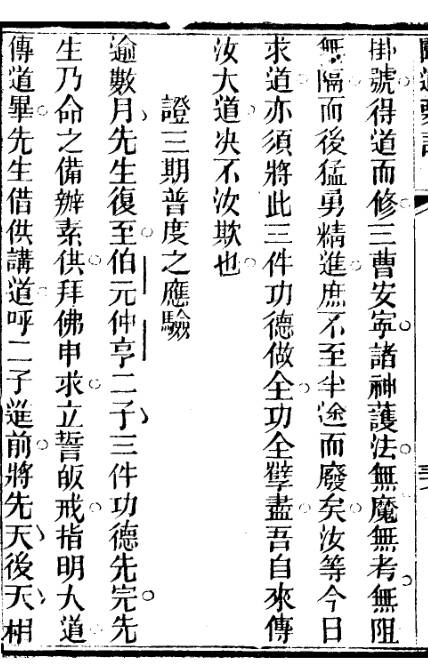 掛號得道而修三曹安寧諸神護法無魔無考無阻
無隔而後猛勇精進庶不至半途而廢矣汝等今日
求道亦須將此三件功德做全功全孽盡吾自來傳
汝大道决不汝欺也
證三期普度之應驗
逾數月先生復至伯元仲亨二子三件功德先完先
生乃命之備辦素供拜佛申求立誓皈戒指明大道
傳道畢先生借供講道呼二子進前將先天後天相